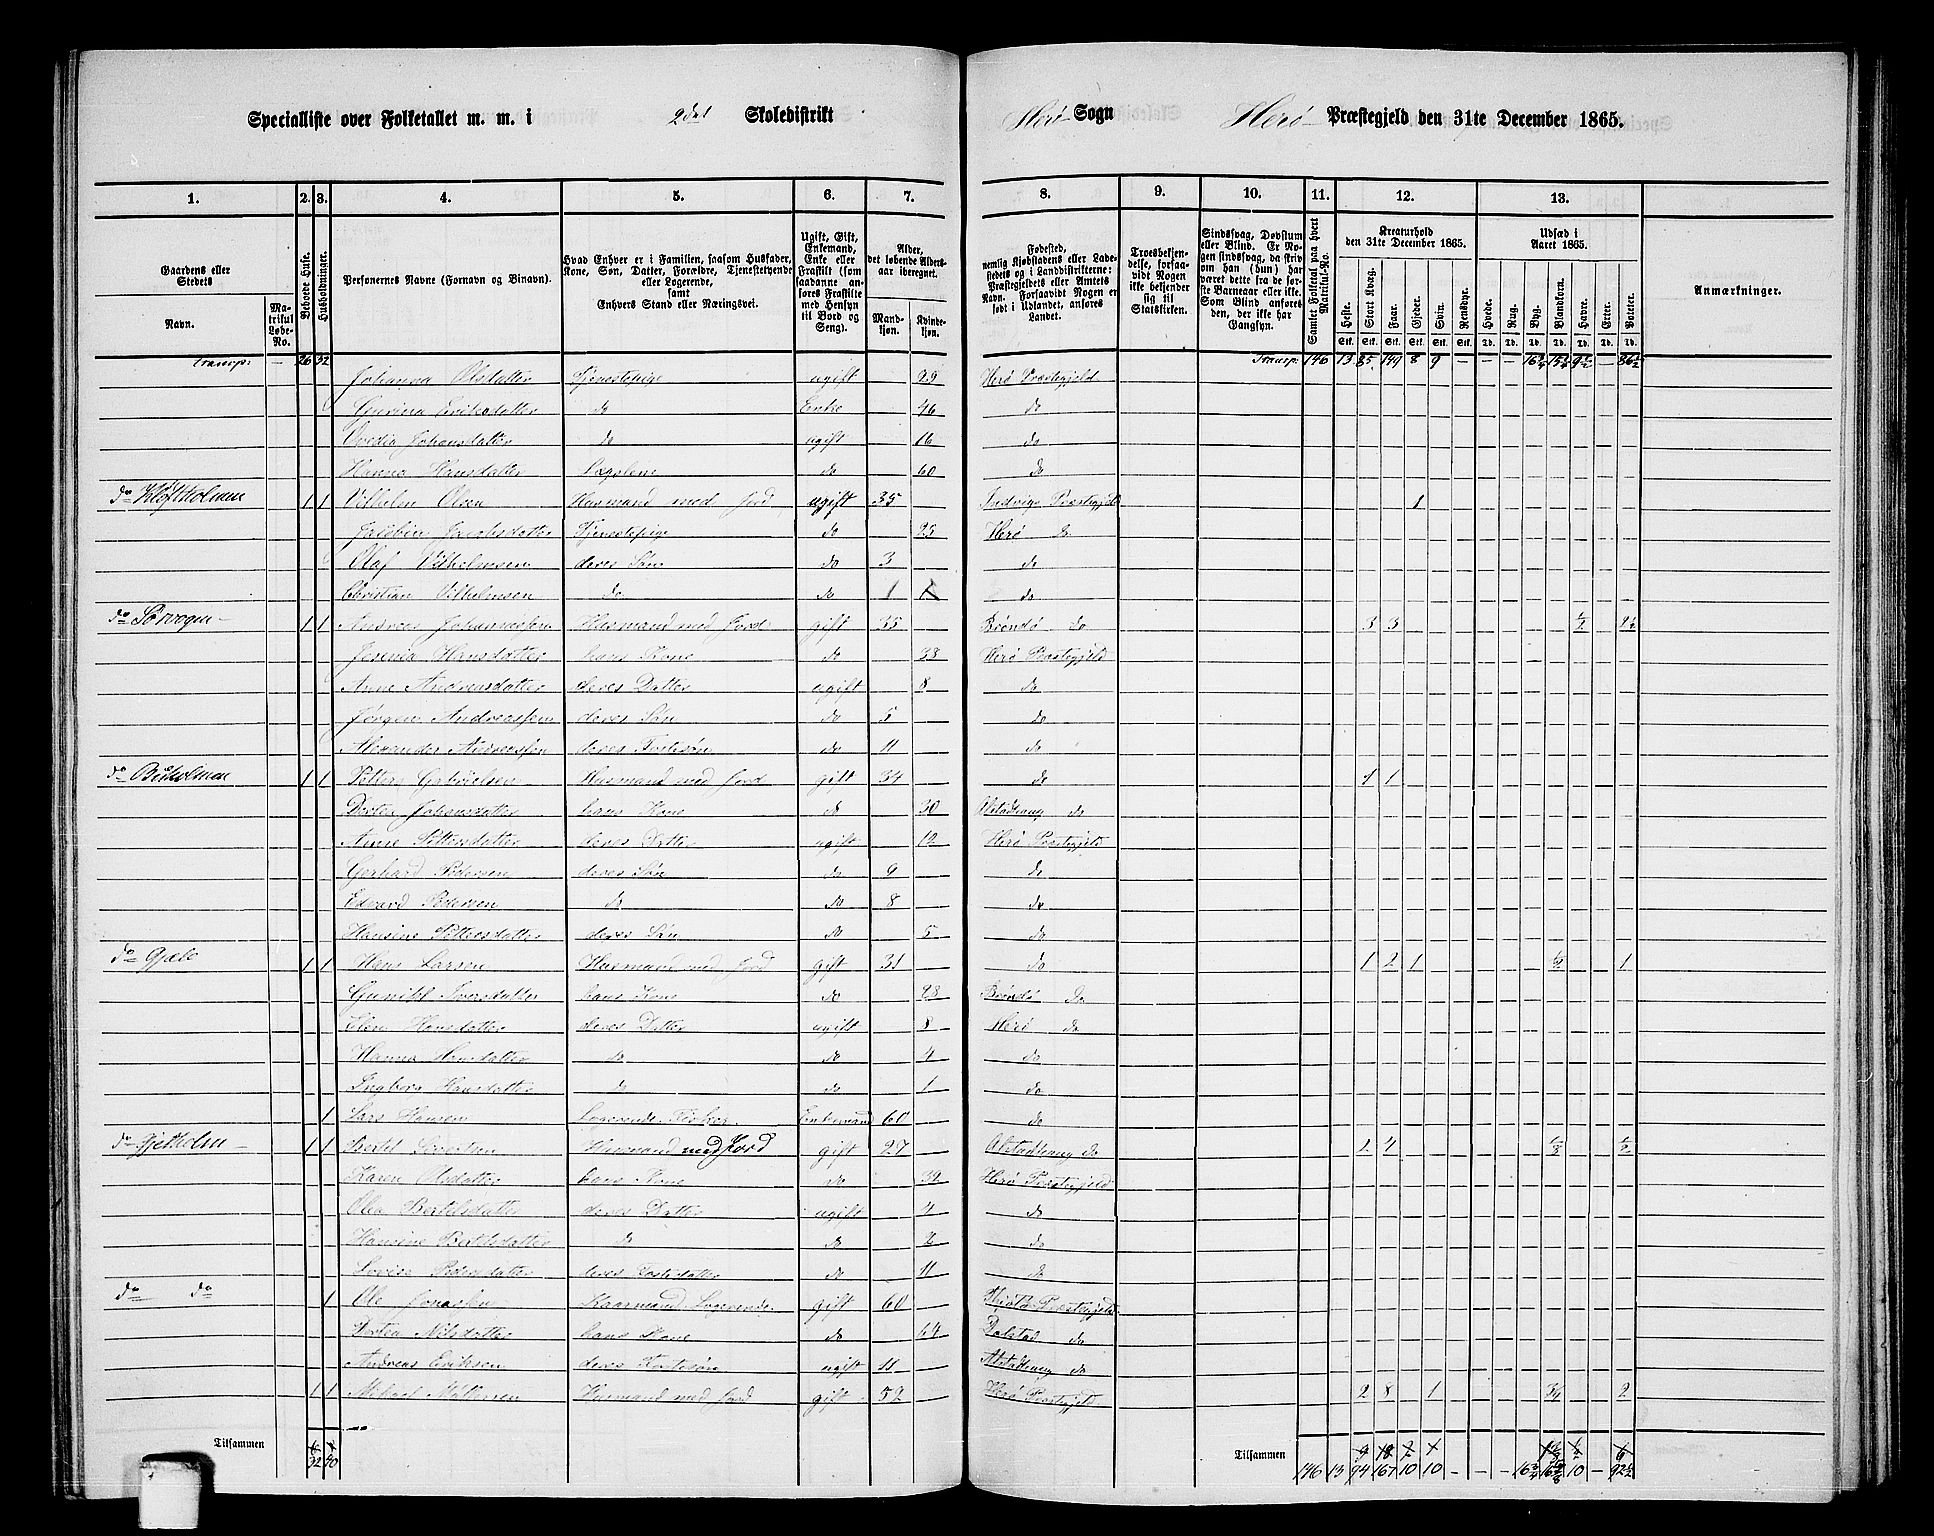 Specialliste over Folketallet m. m. i 2det Skoledistrikt Herø Sogn Herø Præstegjeld den 31te December 1865.
1. 2. 3. 4. 5. 6. 7. 8. 9. 10. 11. 12. 13.
Gaardens eller Stedets Navn. Matrikul Løbe-No. Beboede Huse. Husholdninger. Personernes Navne (Fornavn og Binavn). Hvad Enhver er i Familien, saasom Husfader, Kone, Søn, Datter, Forældre, Tjenestetyende eller Logerende, samt Enhvers Stand eller Næringsvei. Ugift, Gift, Enkemand, Enke eller Fraskilt (som saadanne anføres Fraskilte med Hensyn til Bord og Seng). Alder, det løbende Aldersaar iberegnet. Mandkjøn. Kvindekjøn.
Fødested, nemlig Kjøbstadens eller Ladestedets og i Landdistrikterne: Præstegjeldets eller Amtets Navn. Forsaavidt Nogen er født i Udlandet, anføres Landet. Troesbekjendelse, forsaavidt Nogen ikke bekjender sig til Statskirken. Sindssvag, Døvstum eller Blind. Er Nogen sindssvag, da skriv om han (hun) har været dette fra de første Barneaar eller ikke. Som Blind anføres den, der ikke har Gangsyn. Samlet Folketal paa hvert Matrikul-No. Kreaturhold den 31te December 1865. Heste. Stort Kvæg. Faar. Gjeder. Svin. Rensdyr. Udsæd i Aaret 1865. Hvede. Rug. Byg. Blandkorn. Havre. Erter. Poteter. Anmærkninger.
Transp: — 26 32 Transp: 146 13 85 149 8 9 — — — 16¾ 9½ — 86½
Johanna Olsdatter Tjenestepige ugift 29 Herø Præstegjeld
Gurina Eriksdatter do Enke 46 do
Ovedia Johansdatter do ugift 16 do
Hanna Hansdatter Lægslem do 60 do
do Kløftholmen 1 1 Vilhelm Olsen Husmand med Jord ugift 35 Indvigs Præstegjeld 1
Jakobine Jacobsdatter Tjenestepige do 25 Herø do
Olaf Vilhelmsen deres Søn do 3 do
Christian Vilhelmsen do do 1 1 do
do Sørvogen 1 1 Andreas Johannessen Husmand med Jord gift 35 Brønø do 3 3 ½ 2½
Jesenia Hansdatter hans Kone do 38 Herø Præstegjeld
Anne Andreasdatter deres Datter ugift 8 do
Jørgen Andreassen deres Søn do 5 do
Alexander Andreassen deres Fostersøn do 11 do
do Buholmen 1 1 Petter Husmand med Jord gift 34 do 4 1
Dortea Johansdatter hans Kone do 30 Alstadhaug do
Anne Pettersdatter deres Datter ugift 12 Herø Præstegjeld
Gerhard Pedersen deres Søn do 9 do
Edvard Pedersen do do 8 do
Hansine Pettersdatter deres Søn do 5 do
do Gjæle 1 1 Hans Larsen Husmand med Jord gift 31 do 1 2 1 1
Gunild Iversdatter hans Kone do 28 Brønø do
Elen Hansdatter deres Datter ugift 8 Herø do
Hanna Hansdatter do do 4 do
Ingborg Hansdatter do do 1 do
1 Lars Hansen Logerende Fisker Enkemand 60 do
do Gjetholm 1 1 Bertel Sivertsen Husmand med Jord gift 27 Alstadhaug do 2 4 ½
Karen Olsdatter hans Kone do 39 Herø Præstegjeld
Olea Bertelsdatter deres Datter ugift 4 do
Hansine Bertelsdatter do do 2 do
Lovise Pedersdatter deres Fosterdatter do 11 do
do do 1 Ole Jonassen Kaarmand Logerende gift 60 Præstegjeld
Dortea Nilsdatter hans Kone do 64 Dolstad do
Andreas Eriksen deres Fostersøn ugift 11 Alstadhaug do
1 1 Mikael Mathiesen Husmand med Jord gift 52 Herø Præstegjeld 2 8 1 ¾ 2
Tilsammen 6 32 40 Tilsammen 9 18 2 1 6
146 13 94 167 10 10 — — — 16¾ 10 — 92½